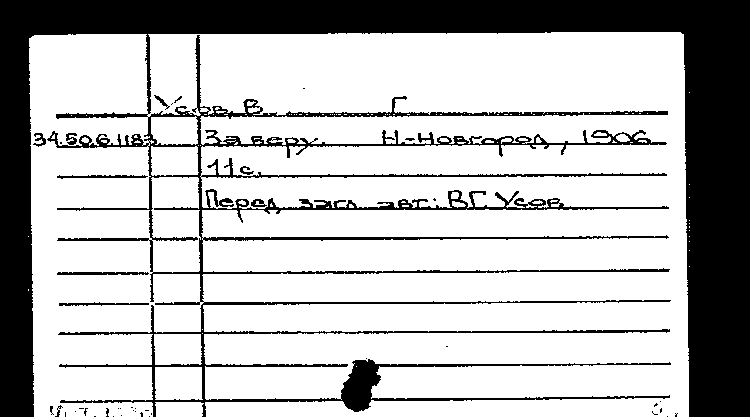 Усов, В Г
34.50.6.1183 За веру. Н.-Новгород, 1906
11с.
Перед загл авт: ВГ Усов